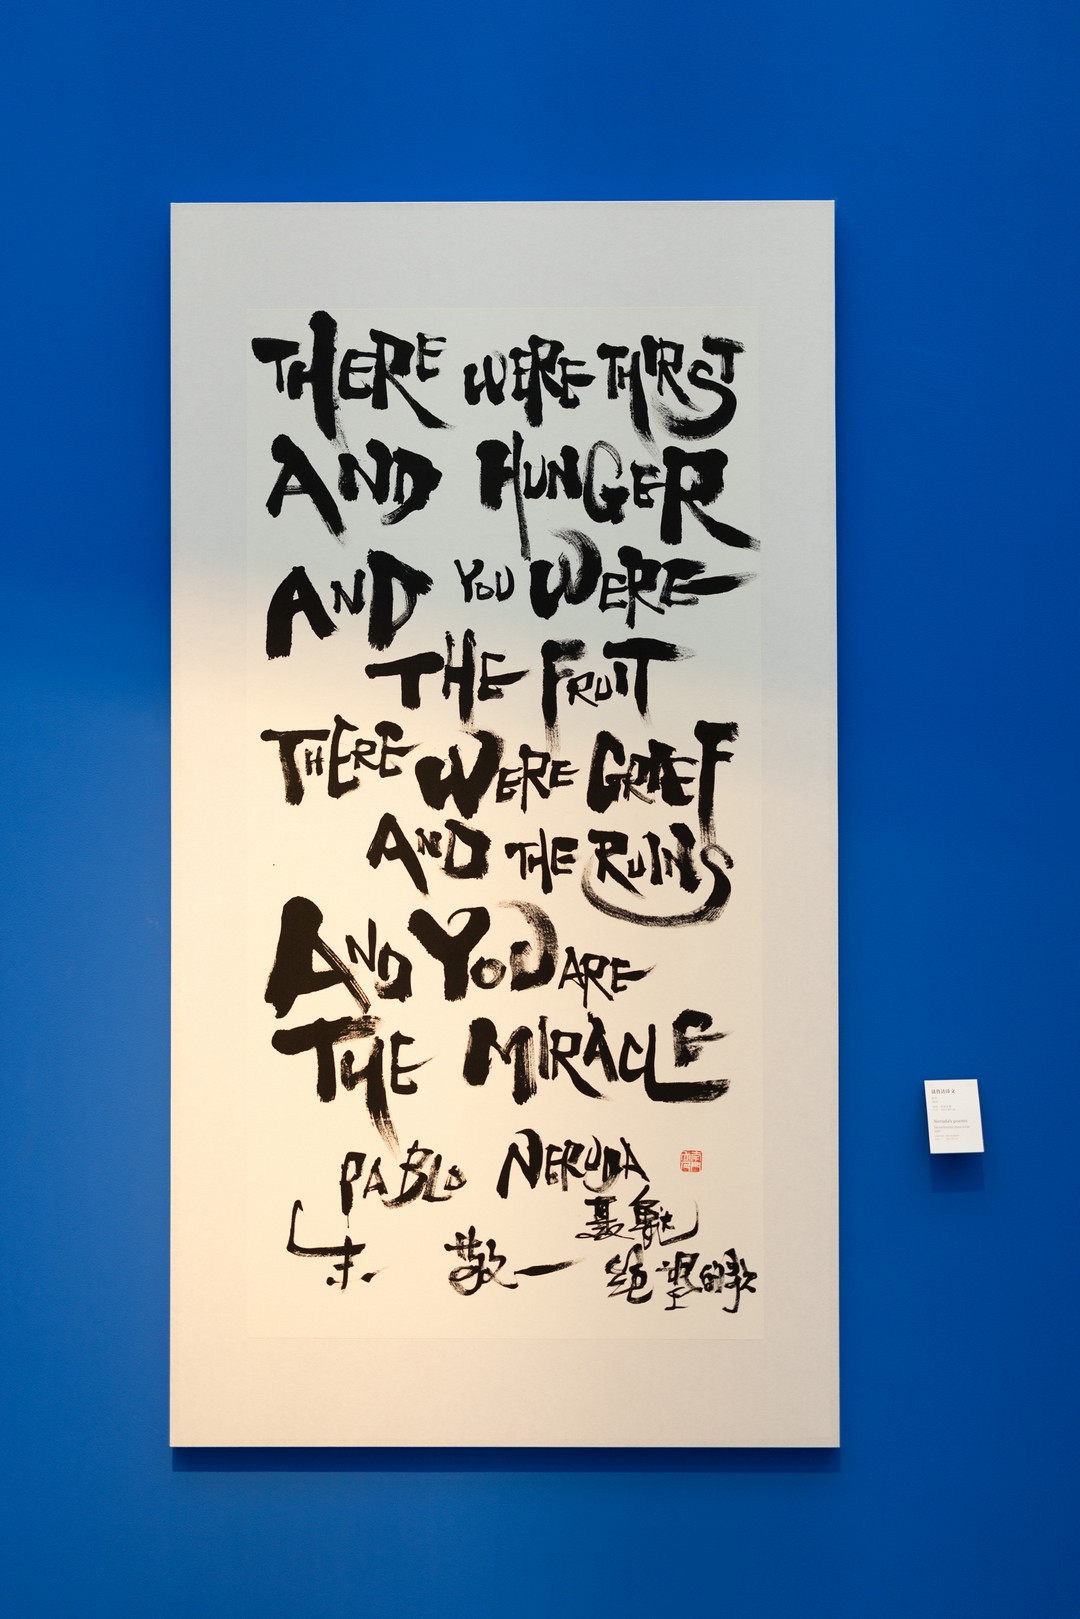 THERE WERE THIRST
AND HUNGER
AND YOU WERE
THE FRUIT
THERE WERE GRIEF
AND THE RUINS
AND YOU ARE
THE MIRACLE
PABLO NERUDA
聂鲁达
朱敬一
绝望的歌